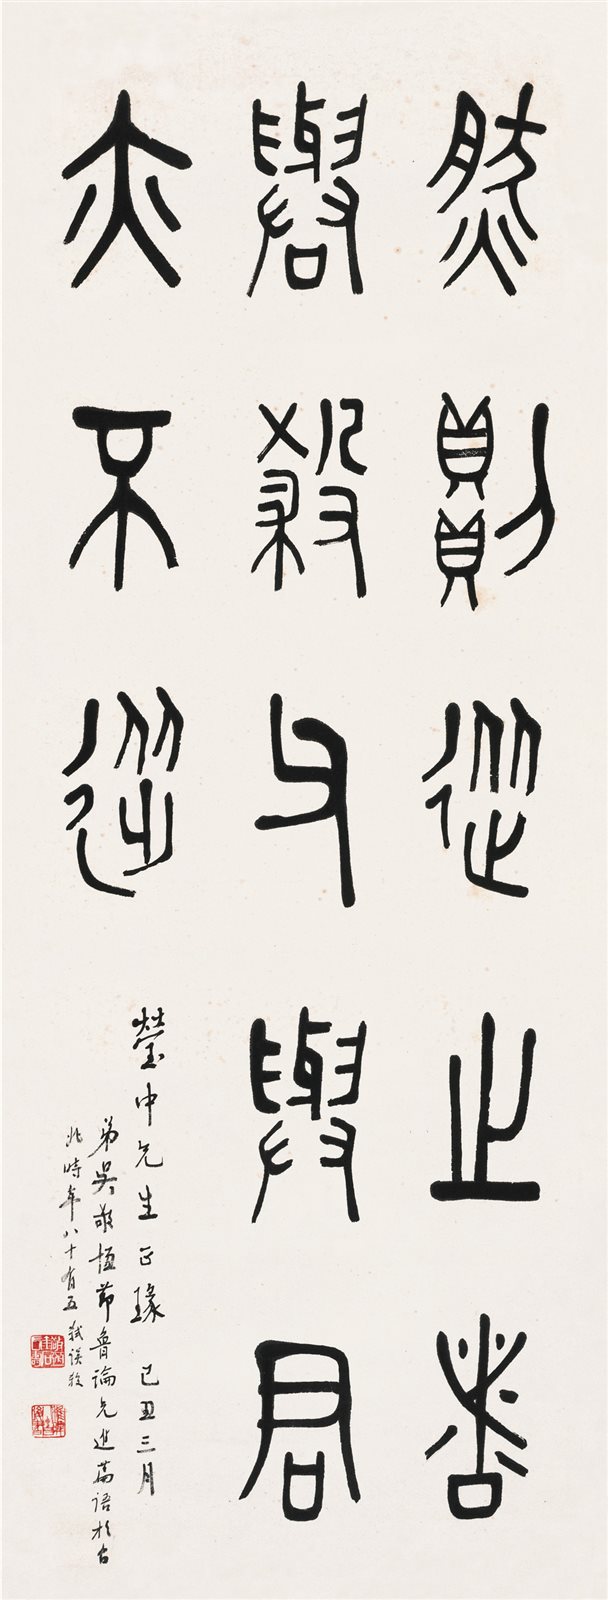 然則從之者
與殺父與君
亦不從
瑩中先生正瑑 己丑三月
弟吳敬恆節魯論先進篇語於台
北時年八十有五 弒誤殺